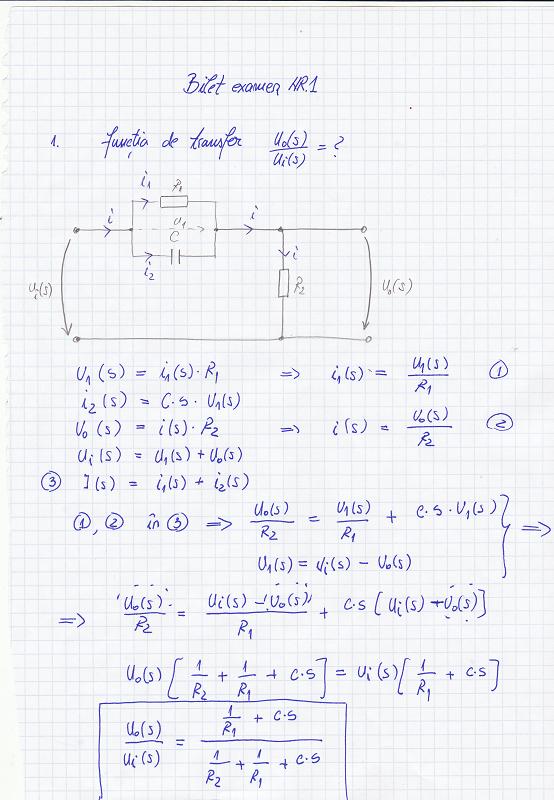 Bilet examen NR.1
1. Funcția de transfer U₀(s)/Ui(s) = ?
i₁ R₁
i u₁ i
C i
i₂ R₂
Ui(s) U₀(s)
U₁(s) = i₁(s)·R₁ => i₁(s) = U₁(s)/R₁ ①
i₂(s) = C·s·U₁(s)
U₀(s) = i(s)·R₂ => i(s) = U₀(s)/R₂ ②
Ui(s) = U₁(s) + U₀(s)
③ I(s) = i₁(s) + i₂(s)
①, ② în ③ => U₀(s)/R₂ = U₁(s)/R₁ + C·s·U₁(s) } =>
U₁(s) = Ui(s) - U₀(s)
=> U₀(s)/R₂ = (Ui(s) - U₀(s))/R₁ + C·s [Ui(s) - U₀(s)]
U₀(s) [1/R₂ + 1/R₁ + C·s] = Ui(s) [1/R₁ + C·s]
U₀(s)/Ui(s) = (1/R₁ + C·s)/(1/R₂ + 1/R₁ + C·s)